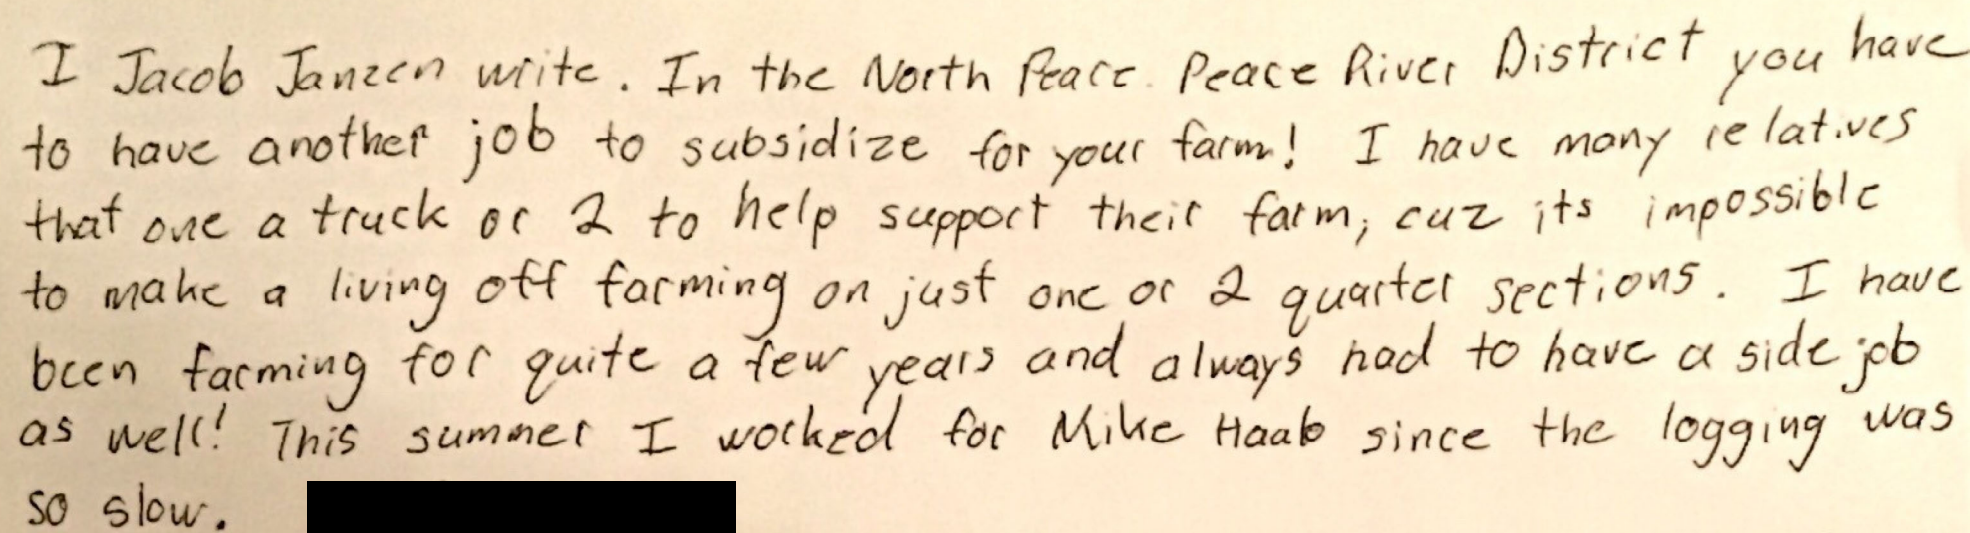 I Jacob Janzen write. In the North Peace. Peace River District you have
to have another job to subsidize for your farm! I have many relatives
that one a truck or 2 to help support their farm, cuz its impossible
to make a living off farming on just one or 2 quarter sections. I have
been farming for quite a few years and always had to have a side job
as well! This summer I worked for Mike Haab since the logging was
so slow.